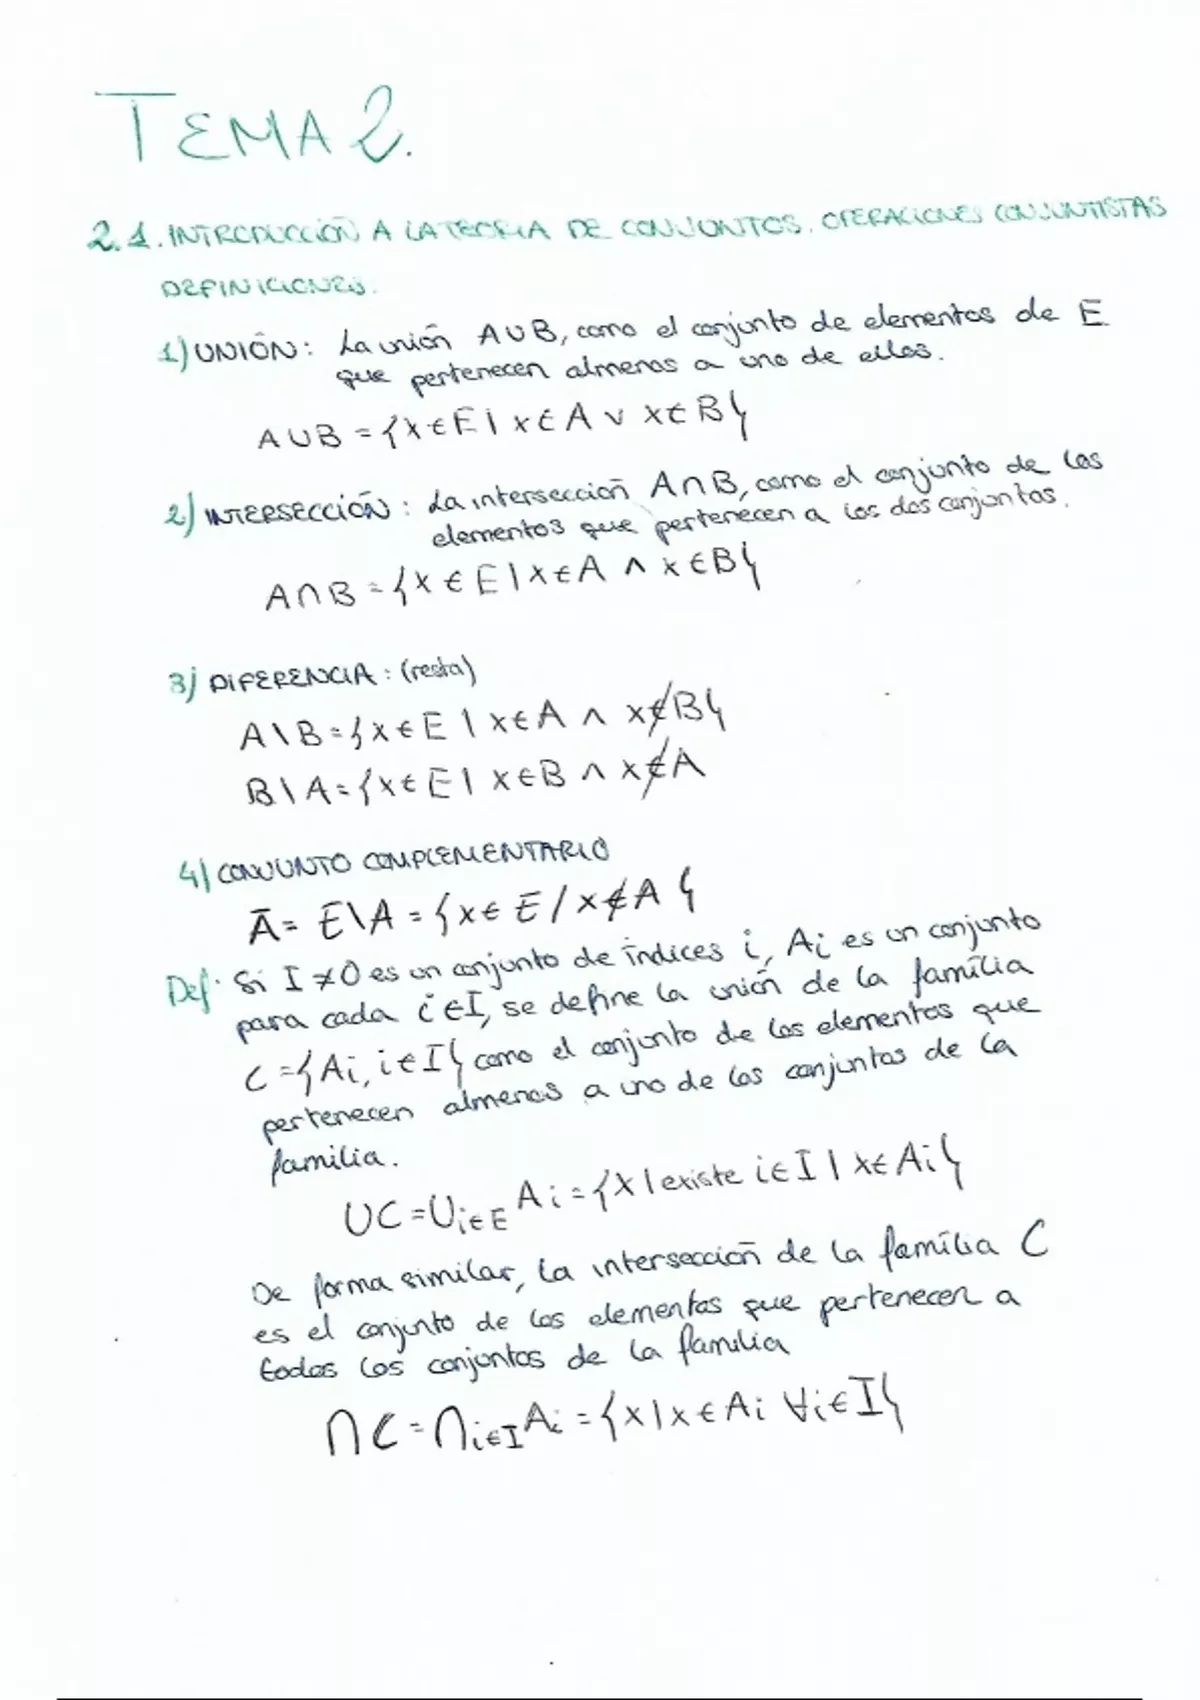 TEMA 2.
2.1. INTRODUCCIÓN A LA TEORIA DE CONJUNTOS. OPERACIONES CONJUNTISTAS
DEFINICIONES.
1) UNIÓN: La unión A∪B, como el conjunto de elementos de E
que pertenecen almenos a uno de ellos.
A∪B = {x∈E | x∈A ∨ x∈B}
2) INTERSECCIÓN: La intersección A∩B, como el conjunto de los
elementos que pertenecen a los dos conjuntos.
A∩B = {x∈E | x∈A ∧ x∈B}
3) DIFERENCIA: (resta)
A\B = {x∈E | x∈A ∧ x∉B}
B\A = {x∈E | x∈B ∧ x∉A
4) CONJUNTO COMPLEMENTARIO
Ā = E\A = {x∈E / x∉A}
Def: Si I ≠ 0 es un conjunto de índices i, Ai es un conjunto
para cada i∈I, se define la unión de la família
C = {Ai, i∈I} como el conjunto de los elementos que
pertenecen almenos a uno de los conjuntos de la
familia.
∪C = ∪i∈E Ai = {x | existe i∈I | x∈Ai}
De forma similar, la intersección de la família C
es el conjunto de los elementos que pertenecen a
todos los conjuntos de la familia
∩C = ∩i∈I Ai = {x | x∈Ai ∀i∈I}